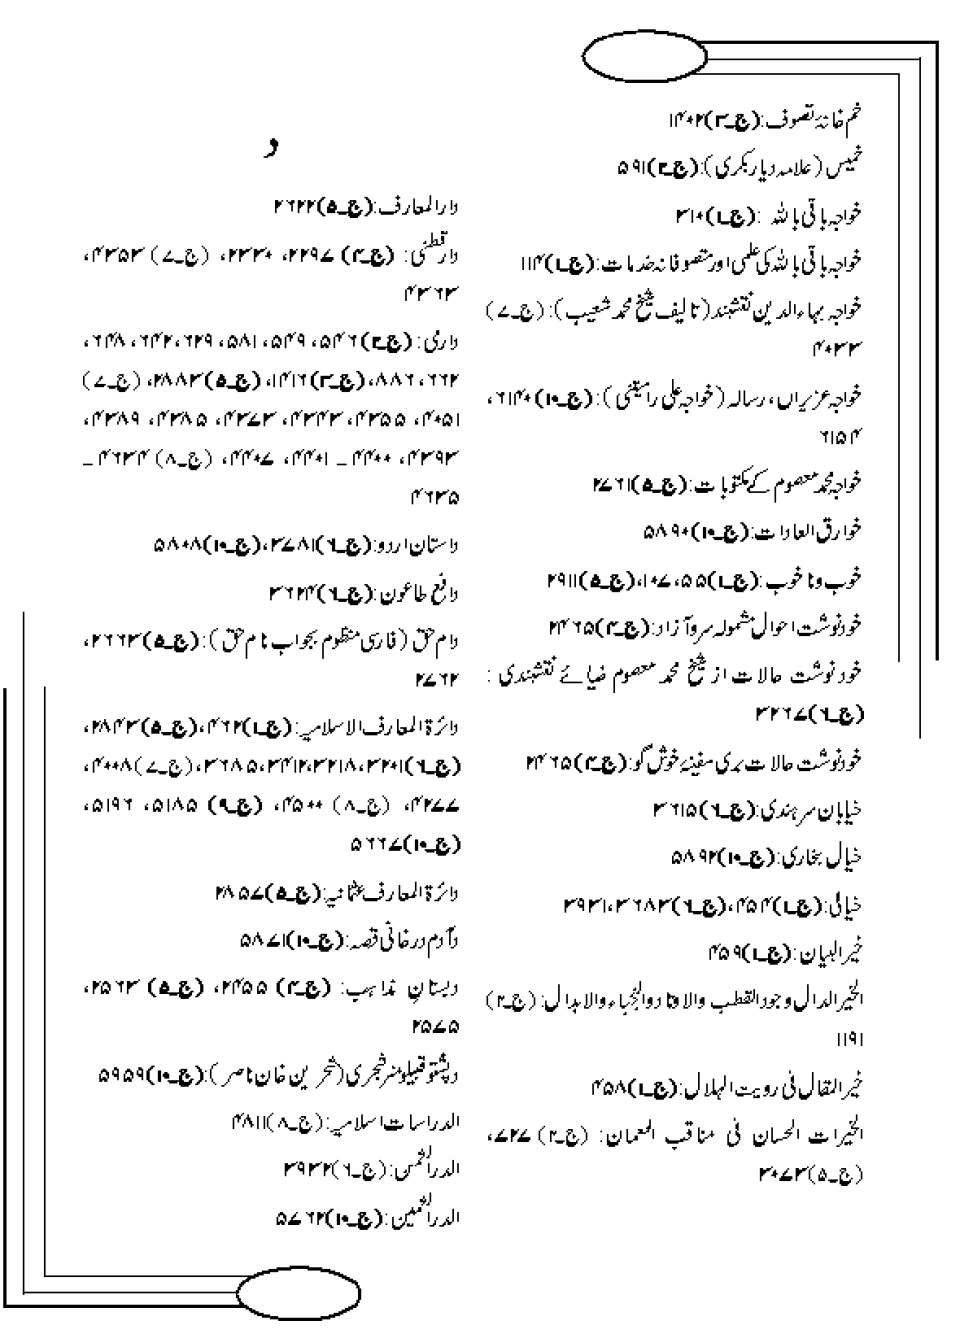 خم خانۂ تصوف:(ج۔۳)۱۴۰۲
خمیس (علامہ دیار بکری):(ج۔۲)۵۹۱
خواجہ باقی باللہ :(ج۔۱)۳۱۰
خواجہ باقی باللہ کی علمی اور متصوفانہ خدمات:(ج۔۱)۱۱۴
خواجہ بہاءالدین نقشبند(تالیف شیخ محمد شعیب):(ج۔۷)
۴۰۳۳
خواجہ عزیزاں، رسالہ (خواجہ علی رامیتنی):(ج۔۱۰)۶۱۴۰،
۶۱۵۴
خواجہ محمد معصوم کے مکتوبات:(ج۔۵)۲۷۶۱
خوارق العادات:(ج۔۱۰)۵۸۹۰
خوب وناخوب:(ج۔۱)۵۵، ۱۰۷،(ج۔۵)۲۹۱۱
خودنوشت احوال مشمولہ سروآزاد:(ج۔۴)۲۴۶۵
خودنوشت حالات از شیخ محمد معصوم ضیائے نقشبندی :
(ج۔۶)۳۲۶۷
خودنوشت حالات بری سفینۂ خوش گو:(ج۔۴)۲۴۶۵
خیابان سرہندی:(ج۔۶)۳۶۱۵
خیال بخاری:(ج۔۱۰)۵۸۹۲
خیالی:(ج۔۱)۴۵۴،(ج۔۶)۳۶۸۳،۳۹۳۱
خیر البیان:(ج۔۱)۴۵۹
الخیر الدال وجود القطب والاوتاد والنجباء والابدال:(ج۔۲)
۱۱۹۱
خیر المقال فی رویت الہلال:(ج۔۱)۴۵۸
الخیرات الحسان فی مناقب النعمان: (ج۔۲)۷۲۷،
(ج۔۵)۳۰۷۳
د
دارالمعارف:(ج۔۵)۲۶۲۲
دارقطنی: (ج۔۴) ۲۲۹۷، ۲۳۳۰، (ج۔۷) ۴۳۵۳،
۴۳۶۳
دارمی:(ج۔۲)۵۴۶، ۵۴۹، ۵۸۱، ۶۲۹، ۶۴۲، ۶۴۸،
۶۶۲، ۸۸۶،(ج۔۳)۱۴۱۶،(ج۔۵)۲۸۸۳، (ج۔۷)
۴۰۵۱، ۴۳۵۵، ۴۳۴۳، ۴۳۷۳، ۴۳۸۵، ۴۳۸۹،
۴۳۹۳، ۴۴۰۰ ۔ ۴۴۰۱، ۴۴۰۷، (ج۔۸)۴۶۳۴ ۔
۴۶۳۵
داستان اردو:(ج۔۶)۳۷۸۱،(ج۔۱۰)۵۸۰۸
دافع طاعون:(ج۔۶)۳۶۲۴
دام حق (فارسی منظوم بجواب نام حق):(ج۔۵)۲۶۶۳،
۲۷۶۲
دائرۃ المعارف الاسلامیہ:(ج۔۱)۴۶۲،(ج۔۵)۲۸۴۳،
(ج۔۶)۳۲۰۱،۳۲۱۸،۳۴۱۲،۳۶۸۵،(ج۔۷)۴۰۰۸،
۴۲۷۷، (ج۔۸) ۴۵۰۰، (ج۔۹) ۵۱۸۵، ۵۱۹۶،
(ج۔۱۰)۵۶۶۷
دائرۃ المعارف عثمانیہ:(ج۔۵)۲۸۵۷
دآدم درخانی قصہ:(ج۔۱۰)۵۸۷۱
دبستانِ مذاہب: (ج۔۴) ۲۴۵۵، (ج۔۵) ۲۵۶۳،
۲۵۷۵
دپشتو قبیلومنرشجری(شحرین خان ناصر):(ج۔۱۰)۵۹۵۹
الدراسات اسلامیہ:(ج۔۸)۴۸۱۱
الدرالثمن:(ج۔۶)۳۹۳۲
الدرالثمین:(ج۔۱۰)۵۷۶۲